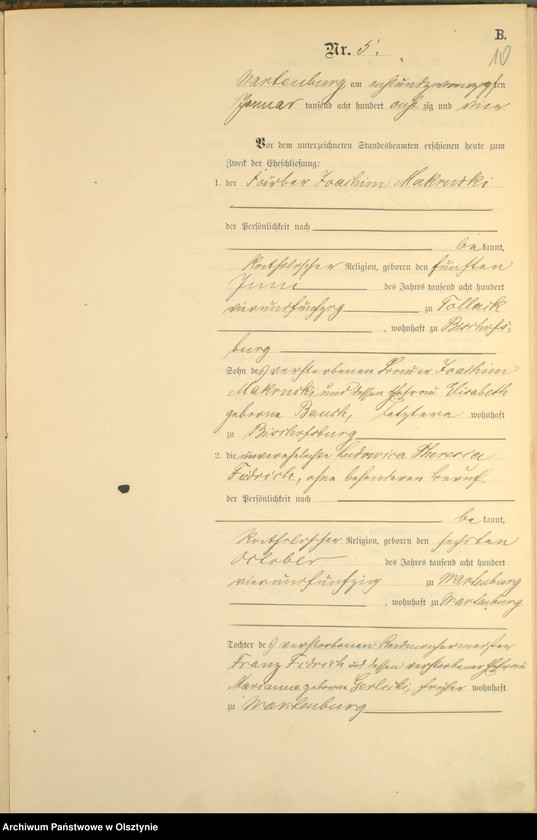 B.
10
Nr. 5.
Wartenburg, am achtundzwanzigsten
Januar tausend acht hundert acht zig und vier
Vor dem unterzeichneten Standesbeamten erschienen heute zum
Zweck der Eheschließung:
1. der Färber Joachim Makrutzki
der Persönlichkeit nach
be kannt,
katholischer Religion, geboren den fünften
Juni des Jahres tausend acht hundert
vierundfünfzig zu Tollack
, wohnhaft zu Bischofs-
burg
Sohn des verstorbenen Joachim
und dessen Ehefrau Elisabeth
geborene letztere wohnhaft
zu Bischofsburg
2. die unverehelichte Ludowica Theresia
Fidrich, ohne besonderen Beruf
der Persönlichkeit nach
be kannt,
katholischer Religion, geboren den sechsten
October des Jahres tausend acht hundert
vierundfünfzig zu Wartenburg
, wohnhaft zu Wartenburg
Tochter des verstorbenen
Franz Fidrich und dessen verstorbener Ehefrau
Marianna geborene früher wohnhaft
zu Wartenburg
Archiwum Państwowe w Olsztynie